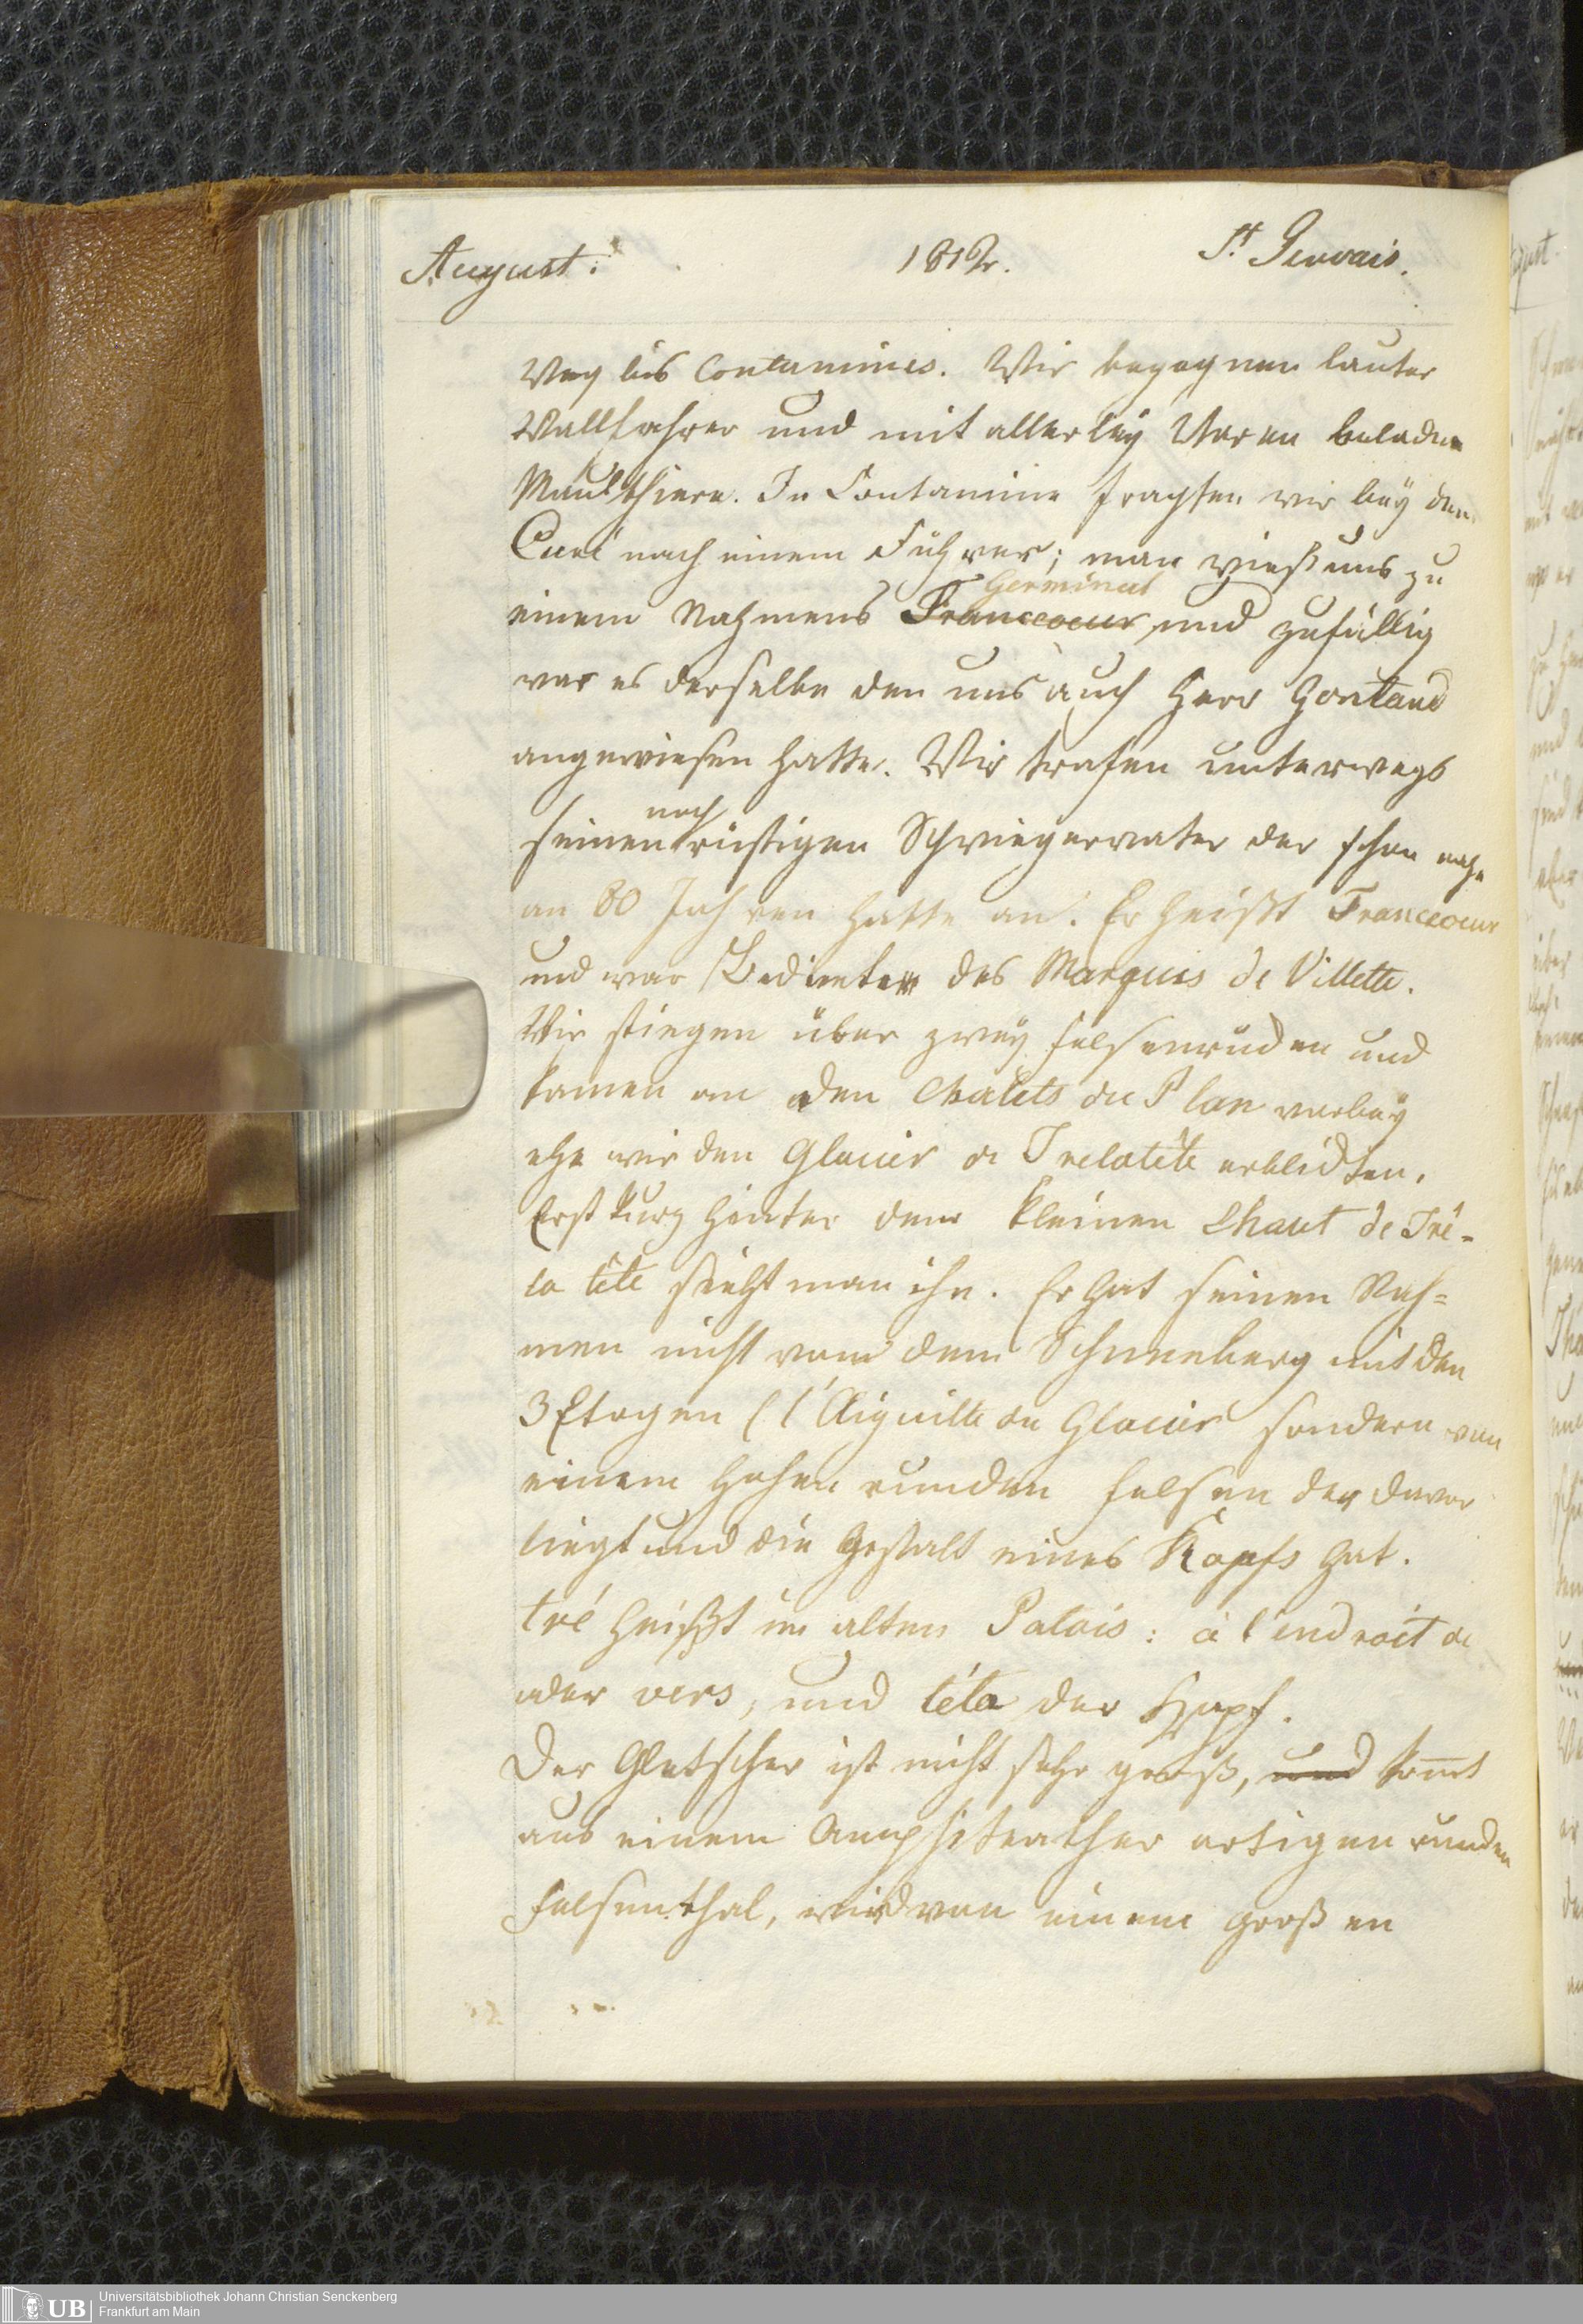 August. 1812. St Gervais.
Weg bis Contamines. Wir begegnen lauter
Wallfahrer und mit allerley Waren beladene
Maulthiere. In Contamine fragten wir bey dem
Curé nach einem Führer; man wieß uns zu
Germinal
einem Nahmens Francoeur und zufällig
war es derselbe den uns auch Herr Gontard
angewiesen hatte. Wir trafen unterwegs
noch
seinen rüstigen Schwiegervater der schon nahe
an 80 Jahren hatte an. Er heißt Francoeur
und war Bedienter des Marquis de Villette.
Wir stiegen über zwey Felsenrücken und
kamen an den Chalets du Plan vorbey
ehe wir den Glacier de Trelatête erblickten.
Erst kurz hinter dem kleinen Chalet de Tré-
la tête sieht man ihn. Er hat seinen Nah=
men nicht von dem Schneeberg mit den
3 Etagen (l'Aiguille du Glacier sondern von
einem hohen runden Felsen der davor
liegt und die Gestalt eines Kopfs hat.
tré heißt im alten Patois: à l'endroit de
oder vers, und téta der Kopf.
Der Gletscher ist nicht sehr groß, und kom̄t
aus einem Amphiteather artigen runden
Felsenthal, wird von einem großen
UB Universitätsbibliothek Johann Christian Senckenberg
Frankfurt am Main